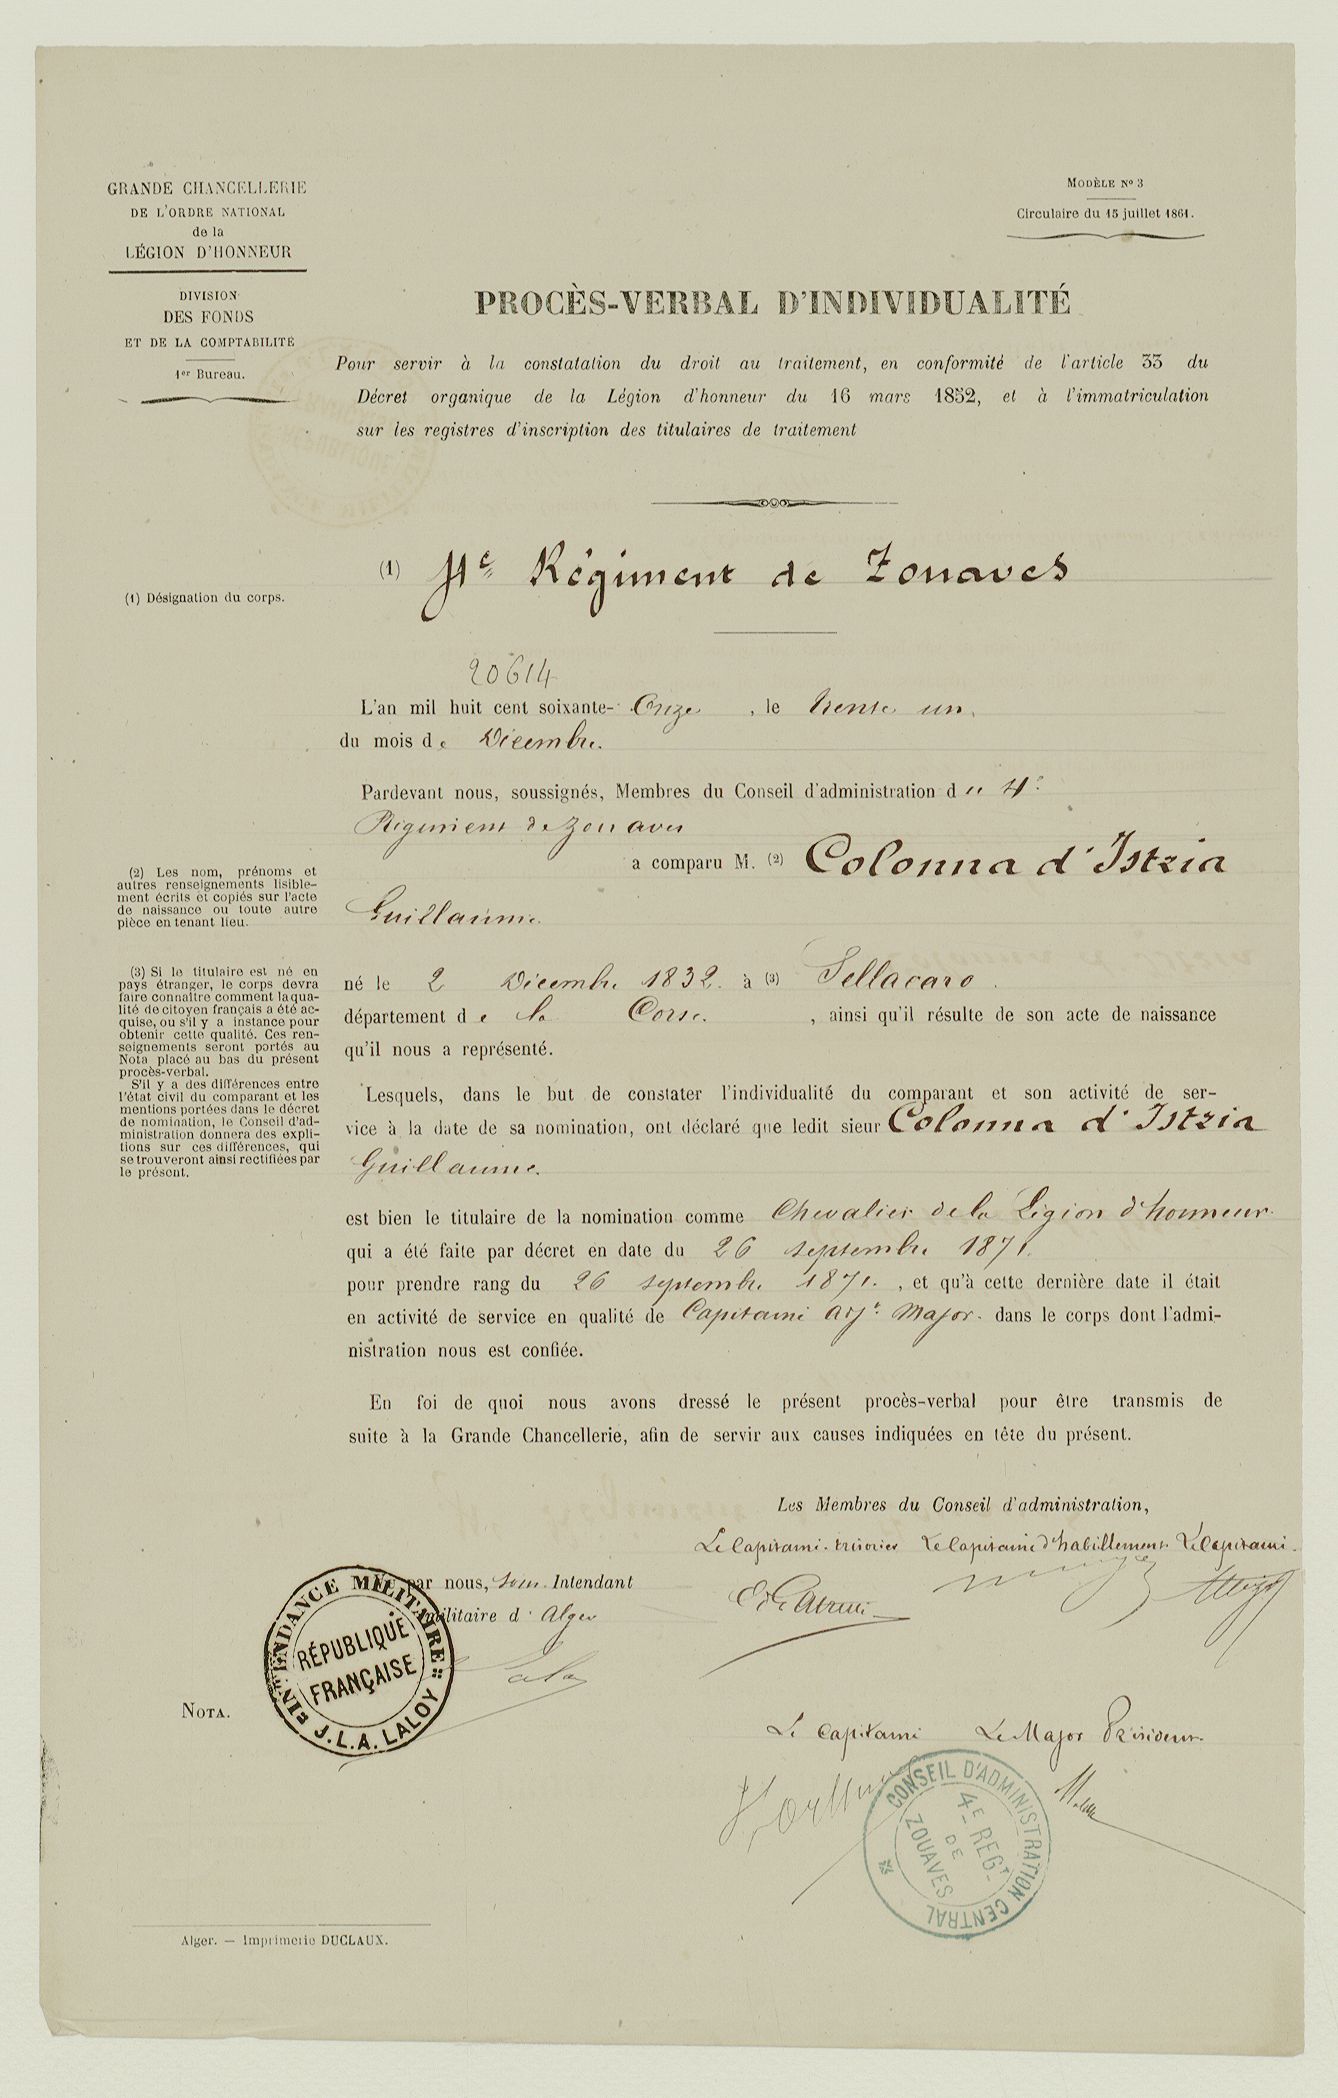 GRANDE CHANCELLERIE
DE L'ORDRE NATIONAL
de la
LÉGION D'HONNEUR
DIVISION
DES FONDS
ET DE LA COMPTABILITÉ
1er Bureau.
MODÈLE No 3
Circulaire du 15 juillet 1861.
PROCÈS-VERBAL D'INDIVIDUALITÉ
Pour servir à la constatation du droit au traitement, en conformité de l'article 33 du
Décret organique de la Légion d'honneur du 16 mars 1852, et à l'immatriculation
sur les registres d'inscription des titulaires de traitement
(1) 4e Régiment de Zouaves
(1) Désignation du corps.
20614
L'an mil huit cent soixante- Onze , le trente un,
du mois de Décembre.
Pardevant nous, soussignés, Membres du Conseil d'administration du 4e
Régiment de Zouaves
a comparu M. (2) Colonna d'Istria
Guillaume.
(2) Les nom, prénoms et
autres renseignements lisible-
ment écrits et copiés sur l'acte
de naissance ou toute autre
pièce en tenant lieu.
né le 2 Décembre 1832. à (3) Sellacaro.
département de la Corse. , ainsi qu'il résulte de son acte de naissance
qu'il nous a représenté.
(3) Si le titulaire est né en
pays étranger, le corps devra
faire connaître comment la qua-
lité de citoyen français a été ac-
quise, ou s'il y a instance pour
obtenir cette qualité. Ces ren-
seignements seront portés au
Nota placé au bas du présent
procès-verbal.
S'il y a des différences entre
l'état civil du comparant et les
mentions portées dans le décret
de nomination, le Conseil d'ad-
ministration donnera des expli-
tions sur ces différences, qui
se trouveront ainsi rectifiées par
le présent.
Lesquels, dans le but de constater l'individualité du comparant et son activité de ser-
vice à la date de sa nomination, ont déclaré que ledit sieur Colonna d'Istria
Guillaume.
est bien le titulaire de la nomination comme Chevalier de la Légion d'honneur.
qui a été faite par décret en date du 26 septembre 1871.
pour prendre rang du 26 septembre 1871. , et qu'à cette dernière date il était
en activité de service en qualité de Capitaine adjt Major. dans le corps dont l'admi-
nistration nous est confiée.
En foi de quoi nous avons dressé le présent procès-verbal pour être transmis de
suite à la Grande Chancellerie, afin de servir aux causes indiquées en tête du présent.
Les Membres du Conseil d'administration,
Le Capitaine trésorier Le Capitaine d'habillement Le Capitaine
Vu par nous, sous Intendant
militaire d'Alger
INTENDANCE MILITAIRE
RÉPUBLIQUE
FRANÇAISE
J.L.A. LALOY
NOTA.
Le Capitaine Le Major Président
CONSEIL D'ADMINISTRATION CENTRAL
4E REGT
DE
ZOUAVES
Alger. — Imprimerie DUCLAUX.